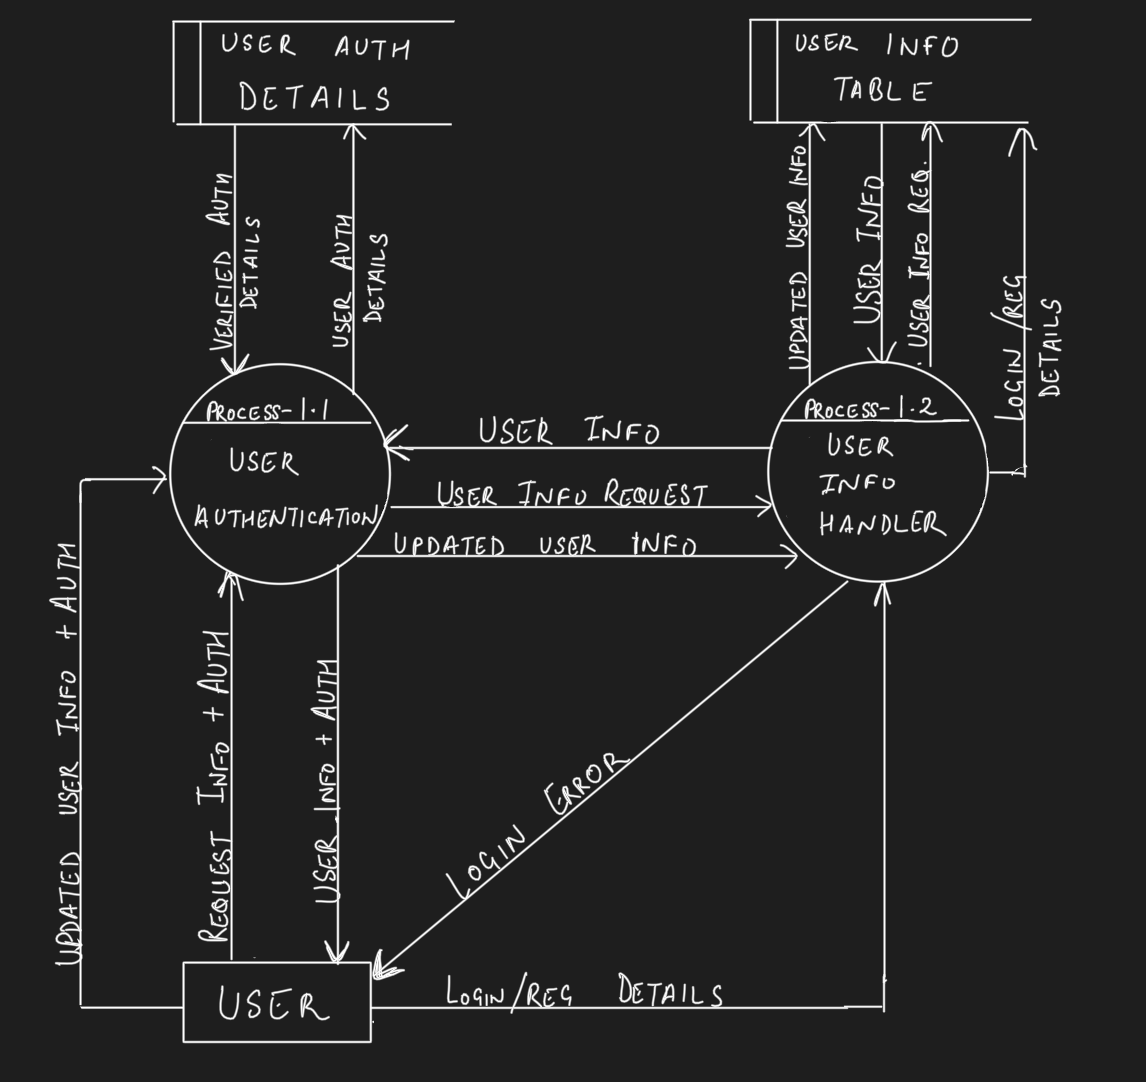 USER AUTH
DETAILS
USER INFO
TABLE
VERIFIED AUTH
DETAILS
USER AUTH
DETAILS
UPDATED USER INFO
USER INFO
USER INFO REQ.
LOGIN/REG
DETAILS
PROCESS-1.1
USER
AUTHENTICATION
USER INFO
USER INFO REQUEST
UPDATED USER INFO
PROCESS-1.2
USER
INFO
HANDLER
UPDATED USER INFO + AUTH
REQUEST INFO + AUTH
USER INFO + AUTH
LOGIN ERROR
USER
LOGIN/REG DETAILS